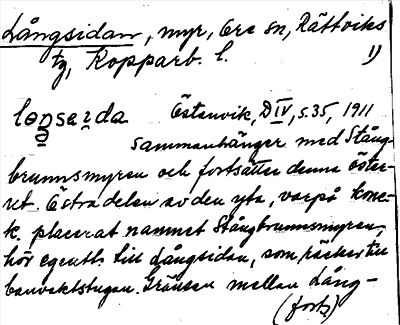 Långsidan, myr, Ore sn, Rättviks
tg, Kopparb. l. 1)
Östanvik, D IV, s. 35, 1911
Sammanhänger med Stång-
brunnsmyren och fortsätter denna öster-
ut. Östra delen av den yta, varpå kone-
k. placerat namnet Stångbrunnsmyren,
hör egentl. till Långsidan, som räcker till
banvaktstugan. Gränsen mellan Lång-
(forts.)